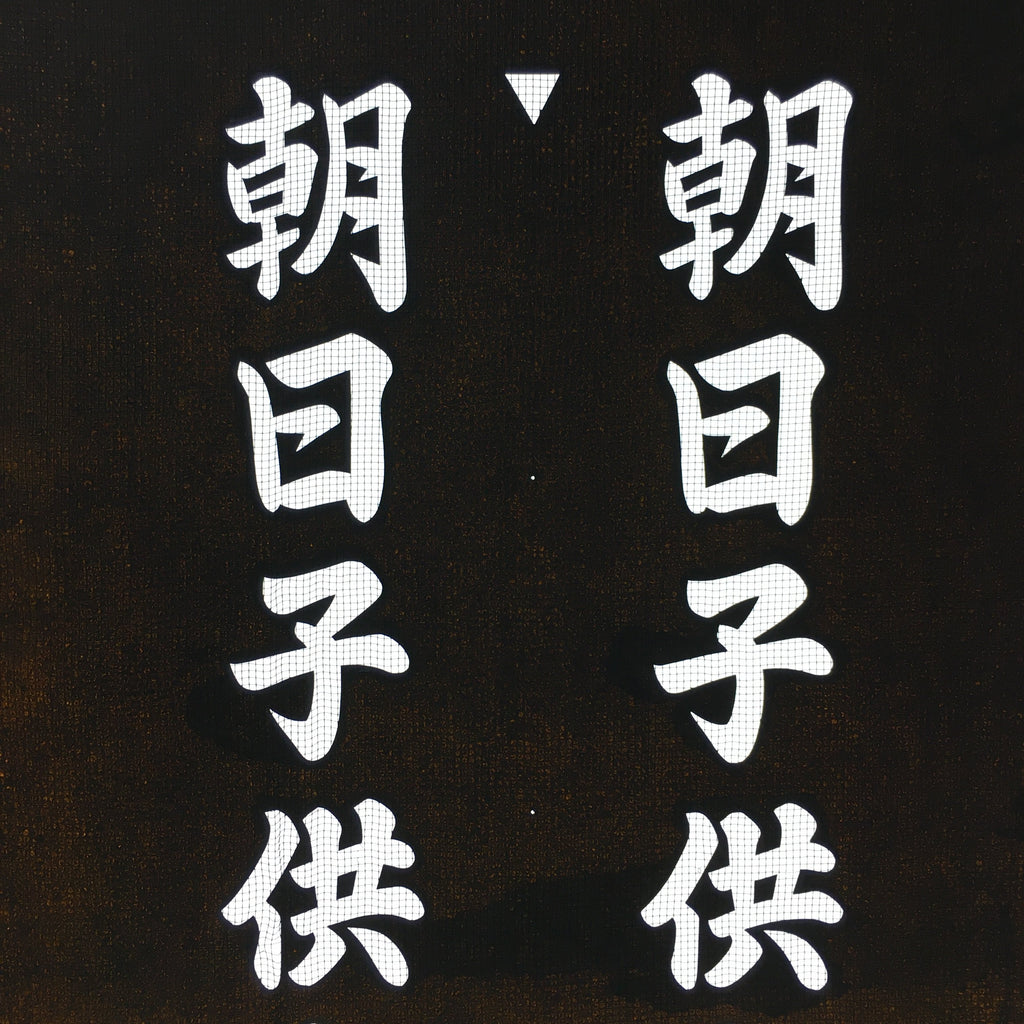 朝日子供
朝日子供